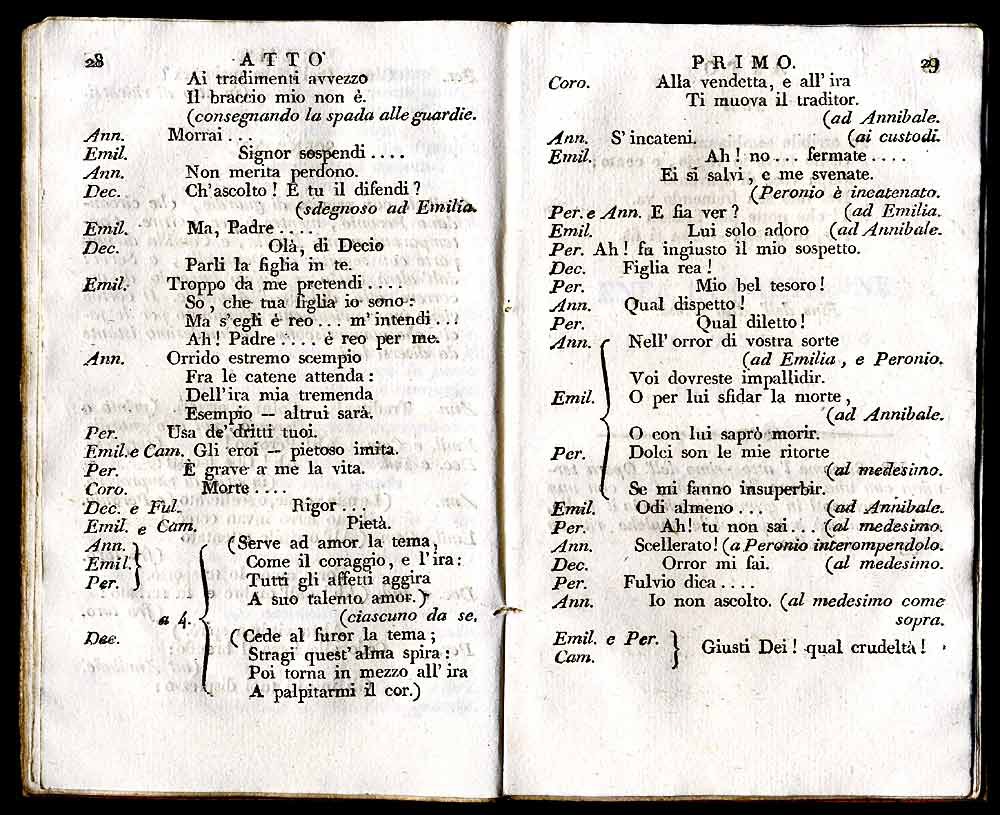 28 ATTO
Ai tradimenti avvezzo
Il braccio mio non è.
(consegnando la spada alle guardie.
Ann. Morrai . . .
Emil. Signor sospendi . . . .
Ann. Non merita perdono.
Dec. Ch'ascolto ! E tu il difendi ?
(sdegnoso ad Emilia.
Emil. Ma, Padre . . . .
Dec. Olà, di Decio
Parli la figlia in te.
Emil. Troppo da me pretendi . . . .
So , che tua figlia io sono :
Ma s'egli è reo . . . m' intendi . . .
Ah ! Padre . . . . è reo per me.
Ann. Orrido estremo scempio
Fra le catene attenda :
Dell'ira mia tremenda
Esempio — altrui sarà.
Per. Usa de' dritti tuoi.
Emil. e Cam. Gli eroi — pietoso imita.
Per. È grave a me la vita.
Coro. Morte . . . .
Dec. e Ful. Rigor . . .
Emil. e Cam. Pietà.
Ann. } (Serve ad amor la tema,
Emil. } Come il coraggio, e l'ira:
Per. } Tutti gli affetti aggira
A suo talento amor.)
a 4. (ciascuno da se.
Dec. (Cede al furor la tema ;
Stragi quest' alma spira :
Poi torna in mezzo all' ira
A palpitarmi il cor.)
PRIMO. 29
Coro. Alla vendetta, e all' ira
Ti muova il traditor.
(ad Annibale.
Ann. S' incateni. (ai custodi.
Emil. Ah ! no . . . fermate . . . .
Ei si salvi , e me svenate.
(Peronio è incatenato.
Per. e Ann. E fia ver ? (ad Emilia.
Emil. Lui solo adoro (ad Annibale.
Per. Ah ! fu ingiusto il mio sospetto.
Dec. Figlia rea !
Per. Mio bel tesoro !
Ann. Qual dispetto !
Per. Qual diletto !
Ann. Nell' orror di vostra sorte
(ad Emilia , e Peronio.
Voi dovreste impallidir.
Emil. O per lui sfidar la morte ,
(ad Annibale.
O con lui saprò morir.
Per. Dolci son le mie ritorte
(al medesimo.
Se mi fanno insuperbir.
Emil. Odi almeno . . . (ad Annibale.
Per. Ah! tu non sai . . . (al medesimo.
Ann. Scellerato! (a Peronio interompendolo.
Dec. Orror mi fai. (al medesimo.
Per. Fulvio dica . . . .
Ann. Io non ascolto. (al medesimo come
sopra.
Emil. e Per. } Giusti Dei ! qual crudeltà !
Cam. }